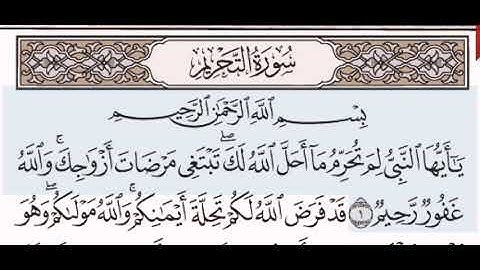 سُورَةُ التَّحْرِيمِ
بِسْمِ ٱللَّهِ ٱلرَّحْمَٰنِ ٱلرَّحِيمِ
يَٰٓأَيُّهَا ٱلنَّبِىُّ لِمَ تُحَرِّمُ مَآ أَحَلَّ ٱللَّهُ لَكَ ۖ تَبْتَغِى مَرْضَاتَ أَزْوَٰجِكَ ۚ وَٱللَّهُ
غَفُورٌ رَّحِيمٌ ١ قَدْ فَرَضَ ٱللَّهُ لَكُمْ تَحِلَّةَ أَيْمَٰنِكُمْ ۚ وَٱللَّهُ مَوْلَىٰكُمْ ۖ وَهُوَ